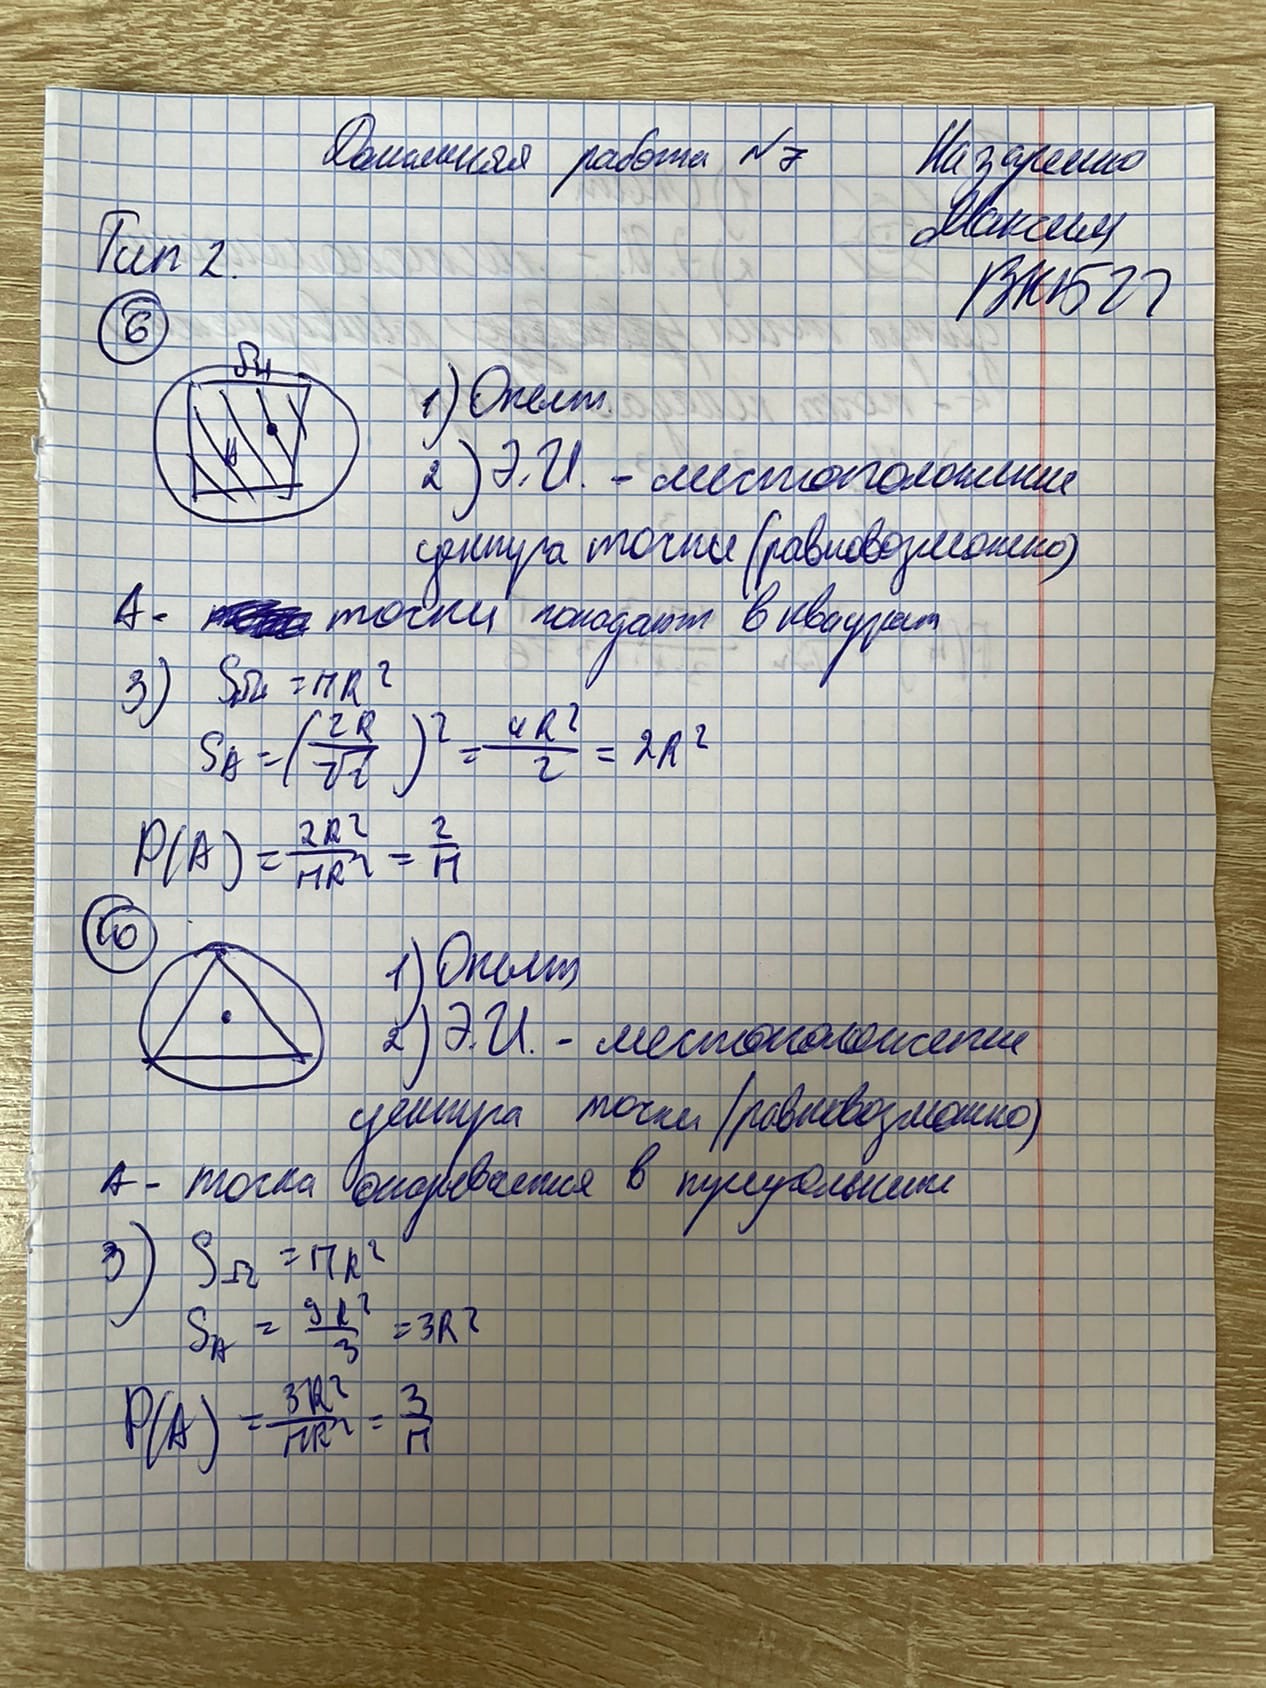 Домашняя работа №7
Назаренко
Максим
Тип 2.
6
Ω
A
1) Опыт.
2) Э.И. - местоположение
центра точки (равновозможно)
A - точки попадают в квадрат
3) SΩ = ПR²
S_A = (2R/√2)² = 4R²/2 = 2R²
P(A) = 2R²/ПR² = 2/П
10
1) Опыт
2) Э.И. - местоположение
центра точки (равновозможно)
A - точка оказывается в
3) SΩ = ПR²
S_A = 9R²/3 = 3R²
P(A) = 3R²/ПR² = 3/П